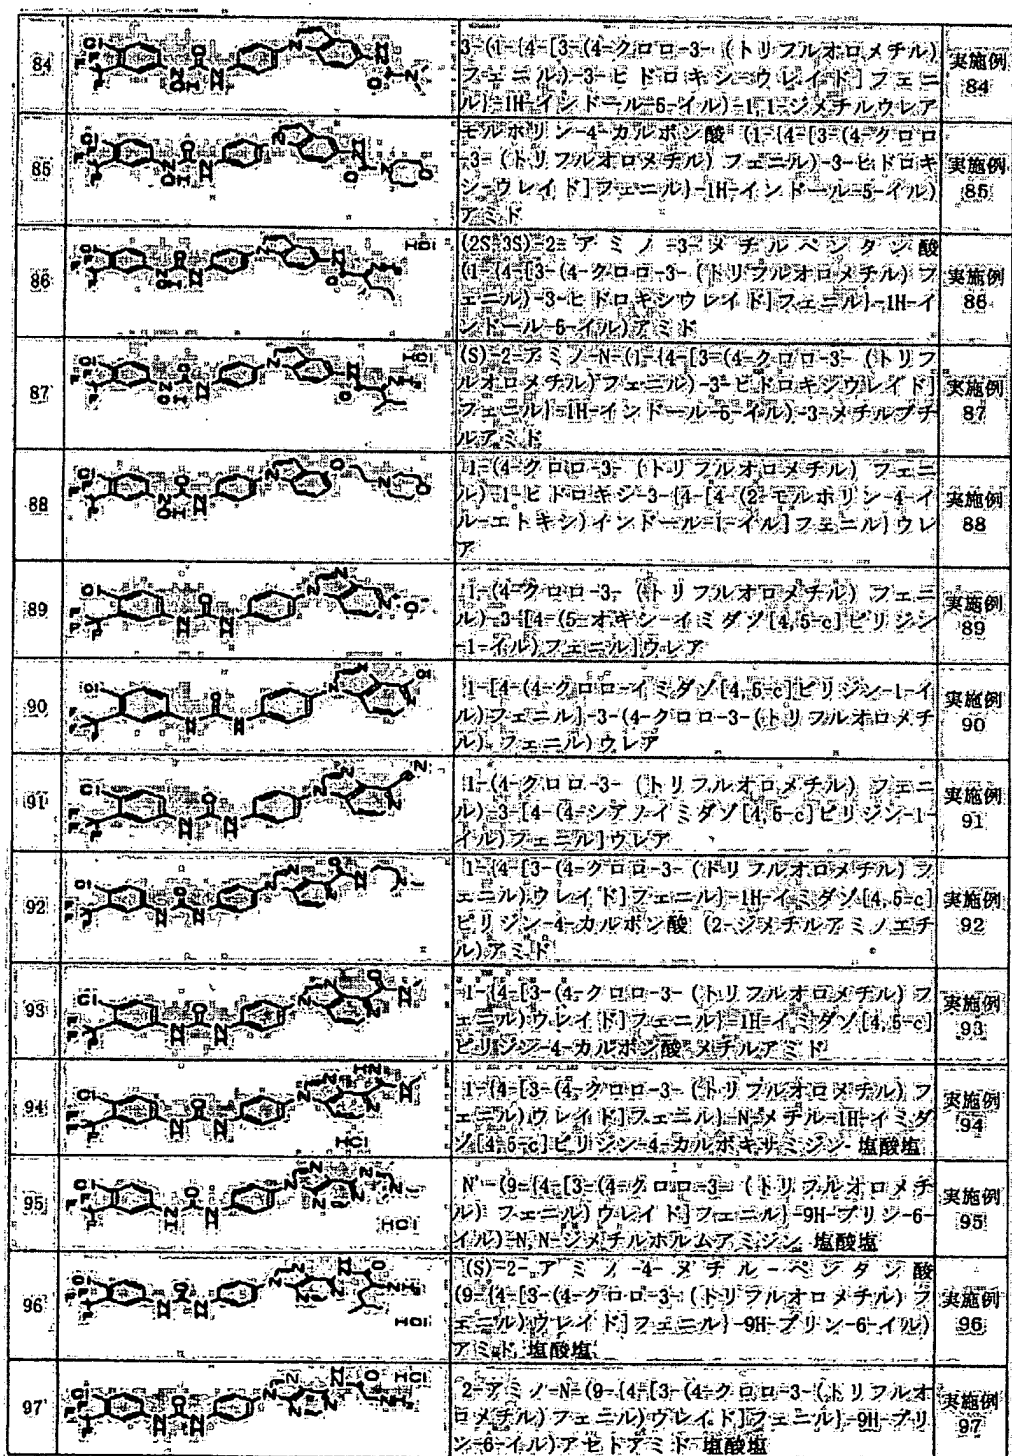 84
3-(1-{4-[3-(4-クロロ-3-(トリフルオロメチル)
フェニル)-3-ヒドロキシ-ウレイド]フェニ
ル}-1H-インドール-5-イル)-1,1-ジメチルウレア
実施例
84
85
モルホリン-4-カルボン酸 (1-{4-[3-(4-クロロ
-3-(トリフルオロメチル)フェニル)-3-ヒドロキ
シ-ウレイド]フェニル}-1H-インドール-5-イル)
アミド
実施例
85
86
(2S,3S)-2-アミノ-3-メチルペンタン酸
(1-{4-[3-(4-クロロ-3-(トリフルオロメチル)フ
ェニル)-3-ヒドロキシウレイド]フェニル}-1H-イ
ンドール-5-イル)アミド
実施例
86
87
(S)-2-アミノ-N-(1-{4-[3-(4-クロロ-3-(トリフ
ルオロメチル)フェニル)-3-ヒドロキシウレイド]
フェニル}-1H-インドール-5-イル)-3-メチルブチ
ルアミド
実施例
87
88
1-(4-クロロ-3-(トリフルオロメチル)フェニ
ル)-1-ヒドロキシ-3-{4-[4-(2-モルホリン-4-イ
ル-エトキシ)インドール-1-イル]フェニル}ウレ
ア
実施例
88
89
1-(4-クロロ-3-(トリフルオロメチル)フェニ
ル)-3-[4-(5-オキシ-イミダゾ[4,5-c]ピリジン
-1-イル)フェニル]ウレア
実施例
89
90
1-[4-(4-クロロ-イミダゾ[4,5-c]ピリジン-1-イ
ル)フェニル]-3-(4-クロロ-3-(トリフルオロメチ
ル)フェニル)ウレア
実施例
90
91
1-(4-クロロ-3-(トリフルオロメチル)フェニ
ル)-3-[4-(4-シアノイミダゾ[4,5-c]ピリジン-1-
イル)フェニル]ウレア
実施例
91
92
1-{4-[3-(4-クロロ-3-(トリフルオロメチル)フ
ェニル)ウレイド]フェニル}-1H-イミダゾ[4,5-c]
ピリジン-4-カルボン酸 (2-ジメチルアミノエチ
ル)アミド
実施例
92
93
1-{4-[3-(4-クロロ-3-(トリフルオロメチル)フ
ェニル)ウレイド]フェニル}-1H-イミダゾ[4,5-c]
ピリジン-4-カルボン酸 メチルアミド
実施例
93
94
1-{4-[3-(4-クロロ-3-(トリフルオロメチル)フ
ェニル)ウレイド]フェニル}-N-メチル-1H-イミダ
ゾ[4,5-c]ピリジン-4-カルボキサミジン 塩酸塩
実施例
94
95
N'-(9-{4-[3-(4-クロロ-3-(トリフルオロメチ
ル)フェニル)ウレイド]フェニル}-9H-プリン-6-
イル)-N,N-ジメチルホルムアミジン 塩酸塩
実施例
95
96
(S)-2-アミノ-4-メチル-ペンタン酸
(9-{4-[3-(4-クロロ-3-(トリフルオロメチル)フ
ェニル)ウレイド]フェニル}-9H-プリン-6-イル)
アミド 塩酸塩
実施例
96
97
2-アミノ-N-(9-{4-[3-(4-クロロ-3-(トリフルオ
ロメチル)フェニル)ウレイド]フェニル}-9H-プリ
ン-6-イル)アセトアミド 塩酸塩
実施例
97